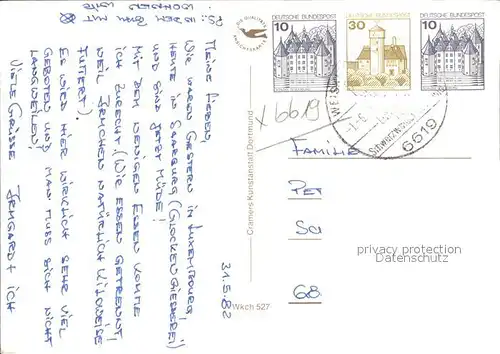 PS: IN DER BAHN MIT
31.5.82
MEINE LIEBEN,
WIR WAREN GESTERN IN LUXEMBOURG,
HEUTE IN SAARBURG (GLOCKENGIESSEREI)
UND SIND JETZT MÜDE!
MIT DEM WENIGEN ESSEN KOMME
ICH ZURECHT (WIR ESSEN GETRENNT,
WEIL IRMCHEN NATÜRLICH KILOWEISE
FUTTERT).
ES WIRD HIER WIRKLICH SEHR VIEL
GEBOTEN UND MAN MUSS SICH NICHT
LANGWEILEN!
VIELE GRÜSSE IRMGARD + ICH
DIE QUALITÄTS
ANSICHTSKARTE
Cramers Kunstanstalt Dortmund
Wkch 527
DEUTSCHE BUNDESPOST
10
DEUTSCHE BUNDESPOST
30
DEUTSCHE BUNDESPOST
10
WEISK
Schwarzwäld
6619
X 6619
FAMILIE
PET
SCI
68
privacy protection
Datenschutz